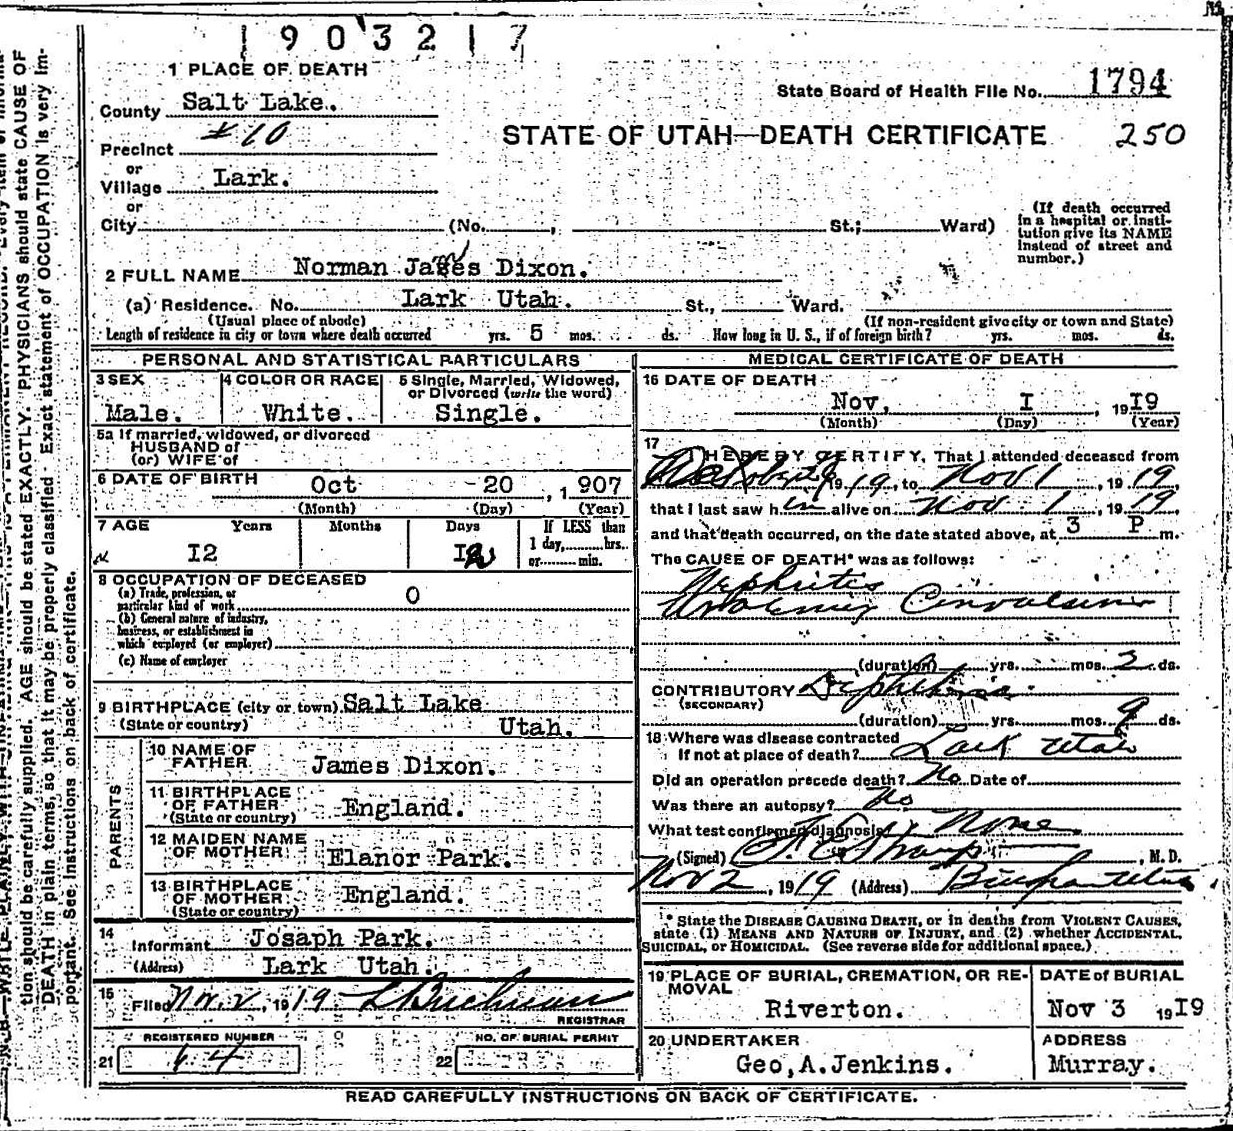 1903217
1 PLACE OF DEATH
County Salt Lake.
State Board of Health File No. 1794
Precinct #10
STATE OF UTAH—DEATH CERTIFICATE 250
or
Village Lark.
or
City (No. , St.; Ward)
(If death occurred
in a hospital or insti-
tution give its NAME
instead of street and
number.)
2 FULL NAME Norman James Dixon.
(a) Residence. No. Lark Utah. St., Ward.
(Usual place of abode) (If non-resident give city or town and State)
Length of residence in city or town where death occurred yrs. 5 mos. ds. How long in U. S., if of foreign birth? yrs. mos. ds.
PERSONAL AND STATISTICAL PARTICULARS
3 SEX
Male.
4 COLOR OR RACE
White.
5 Single, Married, Widowed,
or Divorced (write the word)
Single.
5a If married, widowed, or divorced
HUSBAND of
(or) WIFE of
6 DATE OF BIRTH Oct 20, 1907
(Month) (Day) (Year)
7 AGE Years Months Days If LESS than
1 day, hrs.
or min.
I2
8 OCCUPATION OF DECEASED
(a) Trade, profession, or
particular kind of work O
(b) General nature of industry,
business, or establishment in
which employed (or employer)
(c) Name of employer
9 BIRTHPLACE (city or town) Salt Lake
(State or country) Utah.
PARENTS
10 NAME OF
FATHER James Dixon.
11 BIRTHPLACE
OF FATHER England.
(State or country)
12 MAIDEN NAME
OF MOTHER Elanor Park.
13 BIRTHPLACE
OF MOTHER England.
(State or country)
14
Informant Josaph Park.
(Address) Lark Utah.
15
Filed Nov. 2, 1919 L Buchman
REGISTRAR
REGISTERED NUMBER NO. OF BURIAL PERMIT
21 64 22
MEDICAL CERTIFICATE OF DEATH
16 DATE OF DEATH
Nov, I, 19I9
(Month) (Day) (Year)
17
I HEREBY CERTIFY, That I attended deceased from
1919, to Nov 1, 1919
that I last saw him alive on Nov. 1, 1919
and that death occurred, on the date stated above, at 3 P m.
The CAUSE OF DEATH* was as follows:
Nephritis
Uraemic Convulsions
(duration) yrs. mos. 2 ds.
CONTRIBUTORY Diphtheria
(SECONDARY)
(duration) yrs. mos. 9 ds.
18 Where was disease contracted
if not at place of death? Lark Utah
Did an operation precede death? No Date of
Was there an autopsy? No
What test confirmed diagnosis? None
(Signed) , M. D.
Nov 2, 1919 (Address) Bingham Utah
* State the DISEASE CAUSING DEATH, or in deaths from VIOLENT CAUSES,
state (1) MEANS AND NATURE OF INJURY, and (2) whether ACCIDENTAL,
SUICIDAL, or HOMICIDAL. (See reverse side for additional space.)
19 PLACE OF BURIAL, CREMATION, OR RE-
MOVAL
Riverton.
DATE of BURIAL
Nov 3 19I9
20 UNDERTAKER
Geo,A.Jenkins.
ADDRESS
Murray.
READ CAREFULLY INSTRUCTIONS ON BACK OF CERTIFICATE.
tion should be carefully supplied. AGE should be stated EXACTLY. PHYSICIANS should state CAUSE OF
DEATH in plain terms, so that it may be properly classified. Exact statement of OCCUPATION is very im-
portant. See instructions on back of certificate.